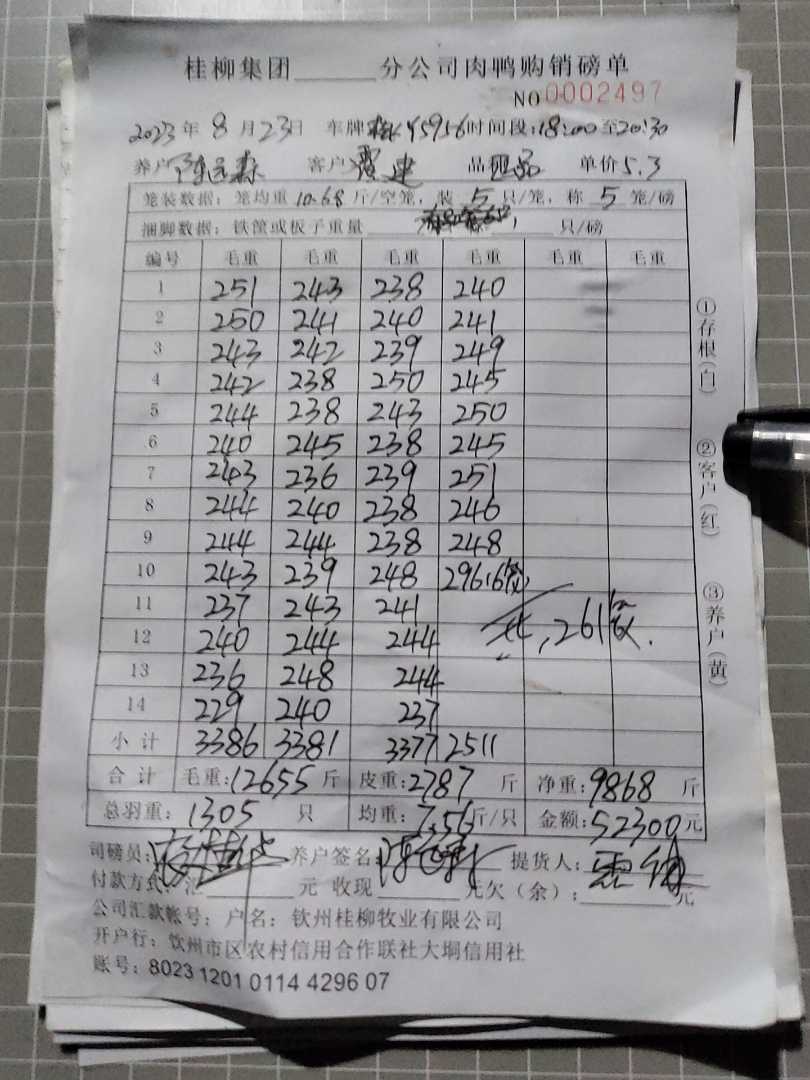 桂柳集团______分公司肉鸭购销磅单
NO0002497
2023年 8月23日 车牌 45956 时间段:18:00至20:30
养户 客户 品 单价5.3
笼装数据:笼均重10.68斤/空笼,装 5 只/笼,称 5 笼/磅
捆脚数据:铁筐或板子重量 只/磅
编号 毛重 毛重 毛重 毛重 毛重 毛重
1 251 243 238 240
2 250 241 240 241
3 243 242 239 249
4 242 238 250 245
5 244 238 243 250
6 240 245 238 245
7 243 236 239 251
8 244 240 238 246
9 244 244 238 248
10 243 239 248 296(6笼)
11 237 243 241
12 240 244 244 共,261笼.
13 236 248 244
14 229 240 237
小计 3386 3381 3377 2511
合计 毛重:12655斤 皮重:2787斤 净重:9868斤
总羽重:1305只 均重:7.56斤/只 金额:52300元
司磅员: 养户签名: 提货人:
付款方式:汇______元 收现______元欠(余):______元
公司汇款帐号:户名:钦州桂柳牧业有限公司
开户行:钦州市区农村信用合作联社大垌信用社
账号:8023 1201 0114 4296 07
①存根(白)
②客户(红)
③养户(黄)